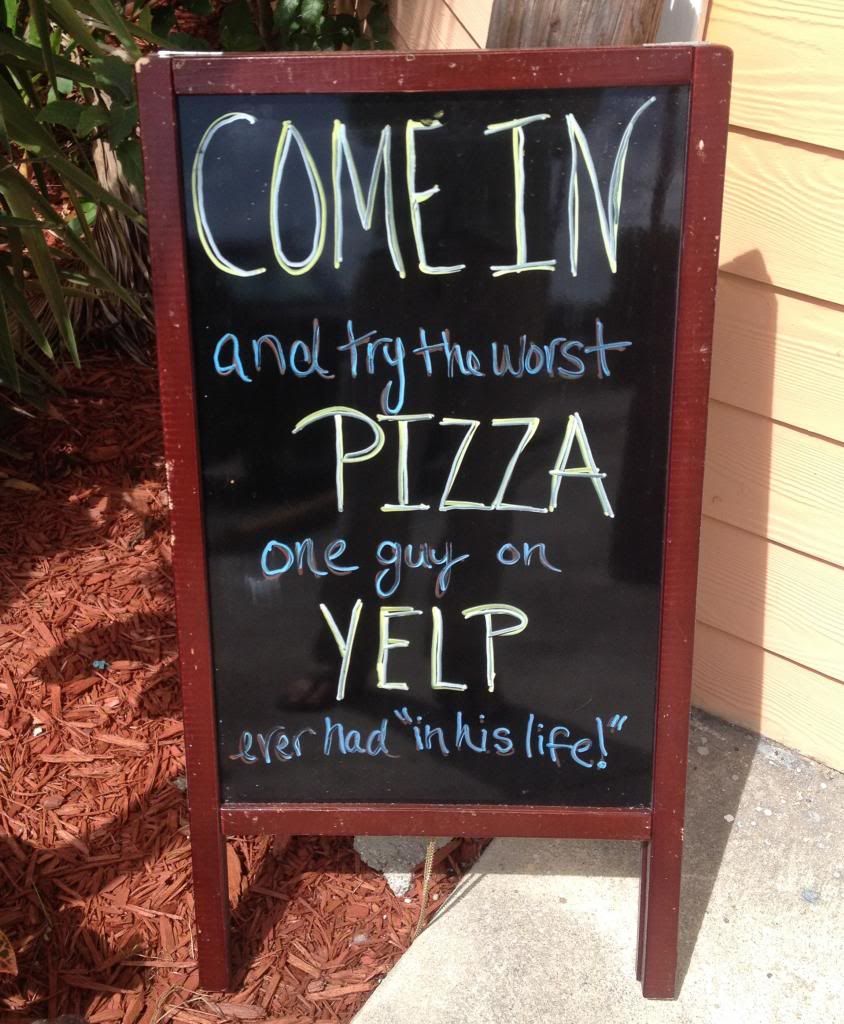 COME IN
and try the worst
PIZZA
one guy on
YELP
ever had "in his life!"